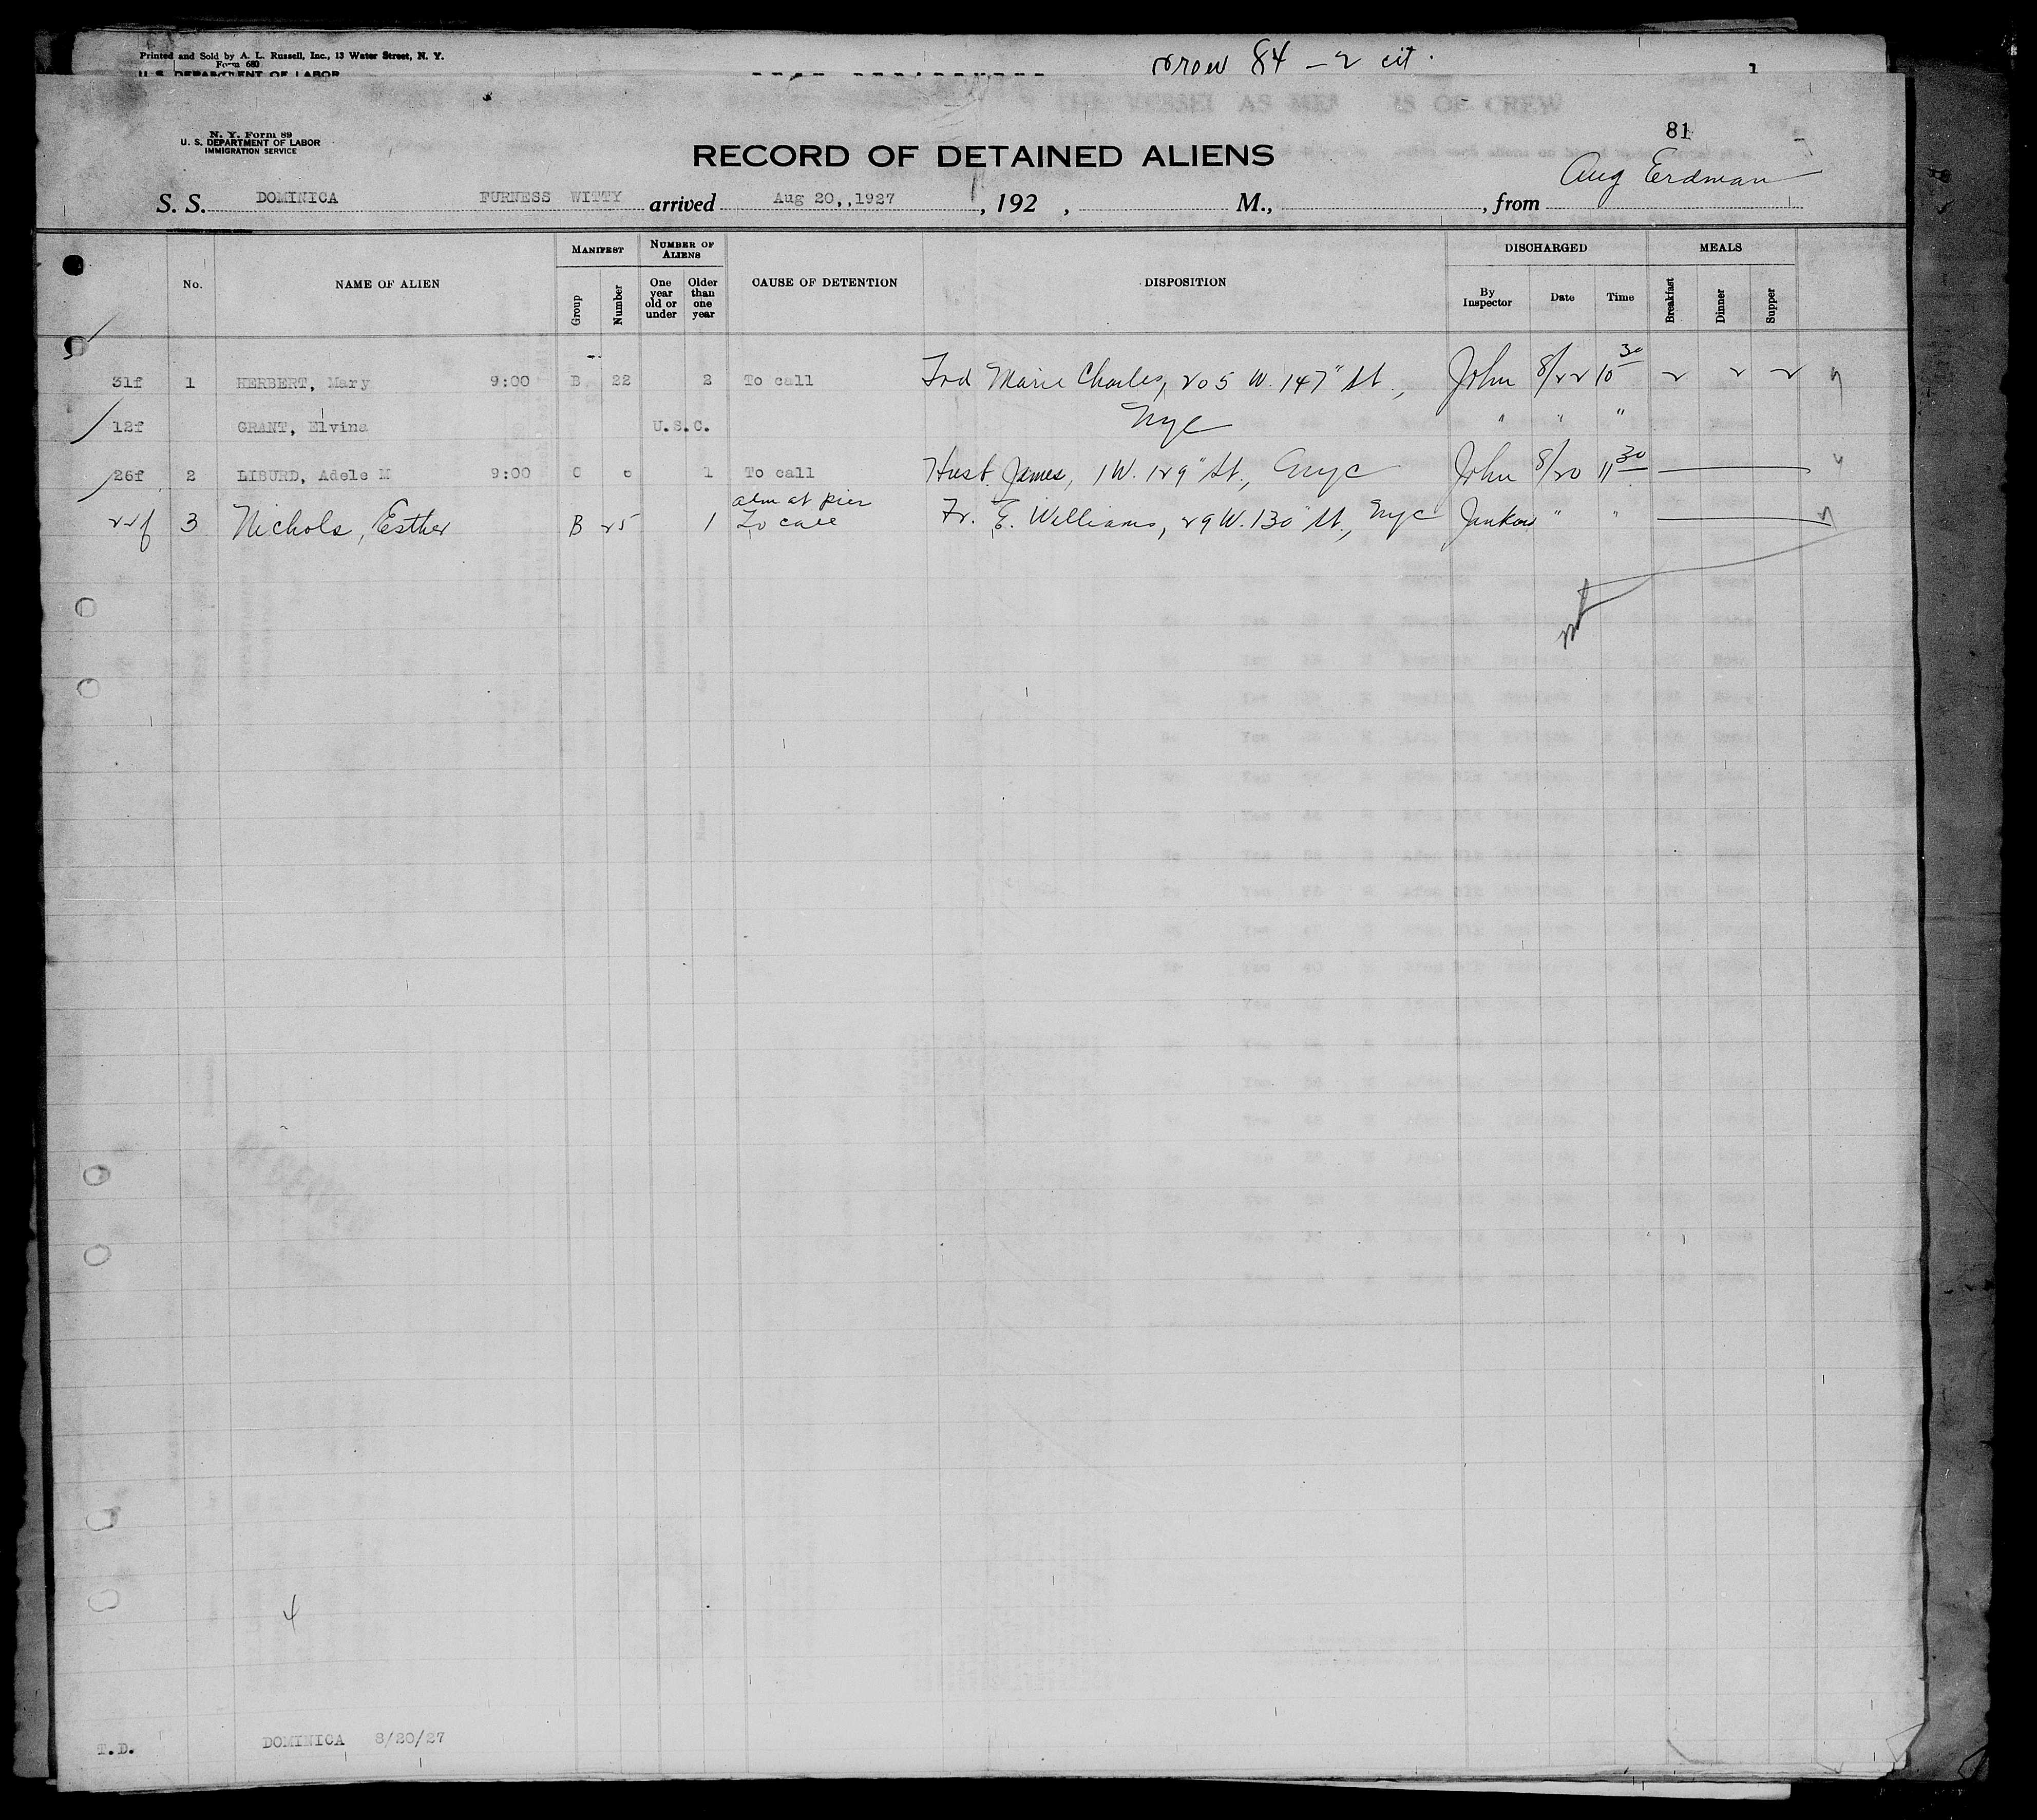 Printed and Sold by A. L. Russell, Inc., 13 Water Street, N. Y.
Form 680
U. S. DEPARTMENT OF LABOR
84 - 2 cit.
1
THE VESSEL AS MEM IS OF CREW
N. Y. Form 89
U. S. DEPARTMENT OF LABOR
IMMIGRATION SERVICE
81
RECORD OF DETAINED ALIENS
Aug Erdman
S. S. DOMINICA FURNESS WITTY arrived Aug 20,,1927, 192 , M., , from
No. NAME OF ALIEN MANIFEST Group Number NUMBER OF ALIENS One year old or under Older than one year CAUSE OF DETENTION DISPOSITION DISCHARGED By Inspector Date Time MEALS Breakfast Dinner Supper
31f 1 HERBERT, Mary 9:00 B 22 2 To call Frd Marie Charles, 205 W. 147" St., John 8/22 10 30 2 2 2
12f GRANT, Elvina U.S.C. NYC " " "
26f 2 LIBURD, Adele M 9:00 C 1 To call Husb James, 1 W. 129" St., NYC John 8/20 11 30
at pier
22f 3 Nichols, Esther B 25 1 To call Fr. E. Williams, 29 W. 130" St., NYC " "
4
T.D. DOMINICA 8/20/27